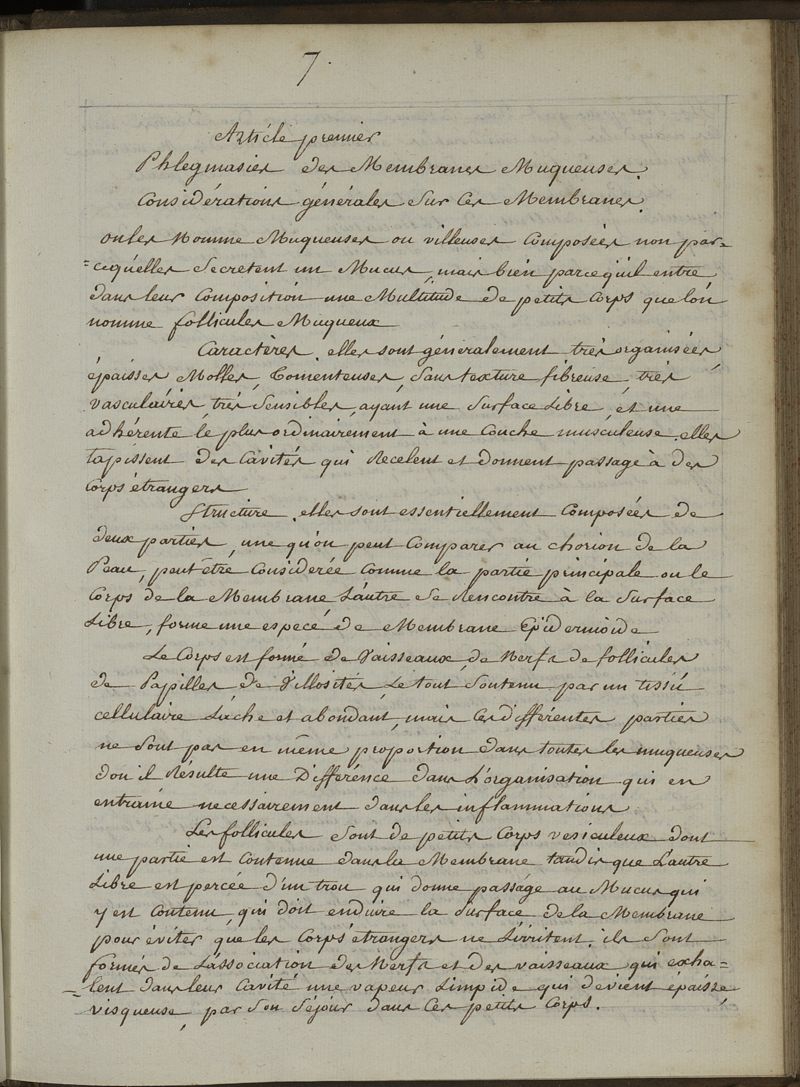 7.
Article premier
Phlegmasies des Membranes Muqueuses.
Considérations générales sur ces Membranes.
on les Nomme Muqueuses ou villeuses Composées non par=
=cequ'elles Secretent un Mucus, mais bien parcequ'il entre
dans leur Composition une Multitude de petits Corps que l'on
nomme follicules Muqueux
Caractères. elles sont généralement très organisées,
épaisses Molles, Tomenteuses, Sans texture fibreuse, très
vasculaires, très Sensibles, ayant une Surface Libre, et une
adhérente le plus ordinairement à une Couche musculeuse, elles
tapissent des Cavités qui Recelent et donnent passage à des
Corps étrangers
Structure. elles sont essentiellement Composées de
deux parties, une qu'on peut Comparer au chorion de la
Peau, peut être Considerée Comme la partie principale ou le
Corps de la Membrane L'autre Se Rencontre à la Surface
Libre, forme une espece de Membrane Epidermoïde
Le Corps est formé de Vaisseaux, de Nerfs de follicules
de Papilles de Villosites Le tout Soutenu par un tissu
cellulaire Lâche et abondant, mais Ces différentes parties
ne Sont pas en même proportion dans toutes les muqueuses
don il Résulte une Différence dans L'organisation qui en
entraine necessairement dans les inflammations
Les follicules Sont de petits Corps vesiculeux dont
une partie est Contenue dans la Membrane tandis que L'autre
Libre est percée d'un trou qui donne passage au Mucus qui
y est Contenu, qui doit enduire la Surface de la Membrane
pour éviter que les Corps étrangers ne L'irritent, ils Sont
formés de L'association des Nerfs et des vaisseaux qui exha=
=lent dans leur Cavité une vapeur Limpide qui devient épaisse
visqueuse, par Son Séjour dans Ces petits Corps.